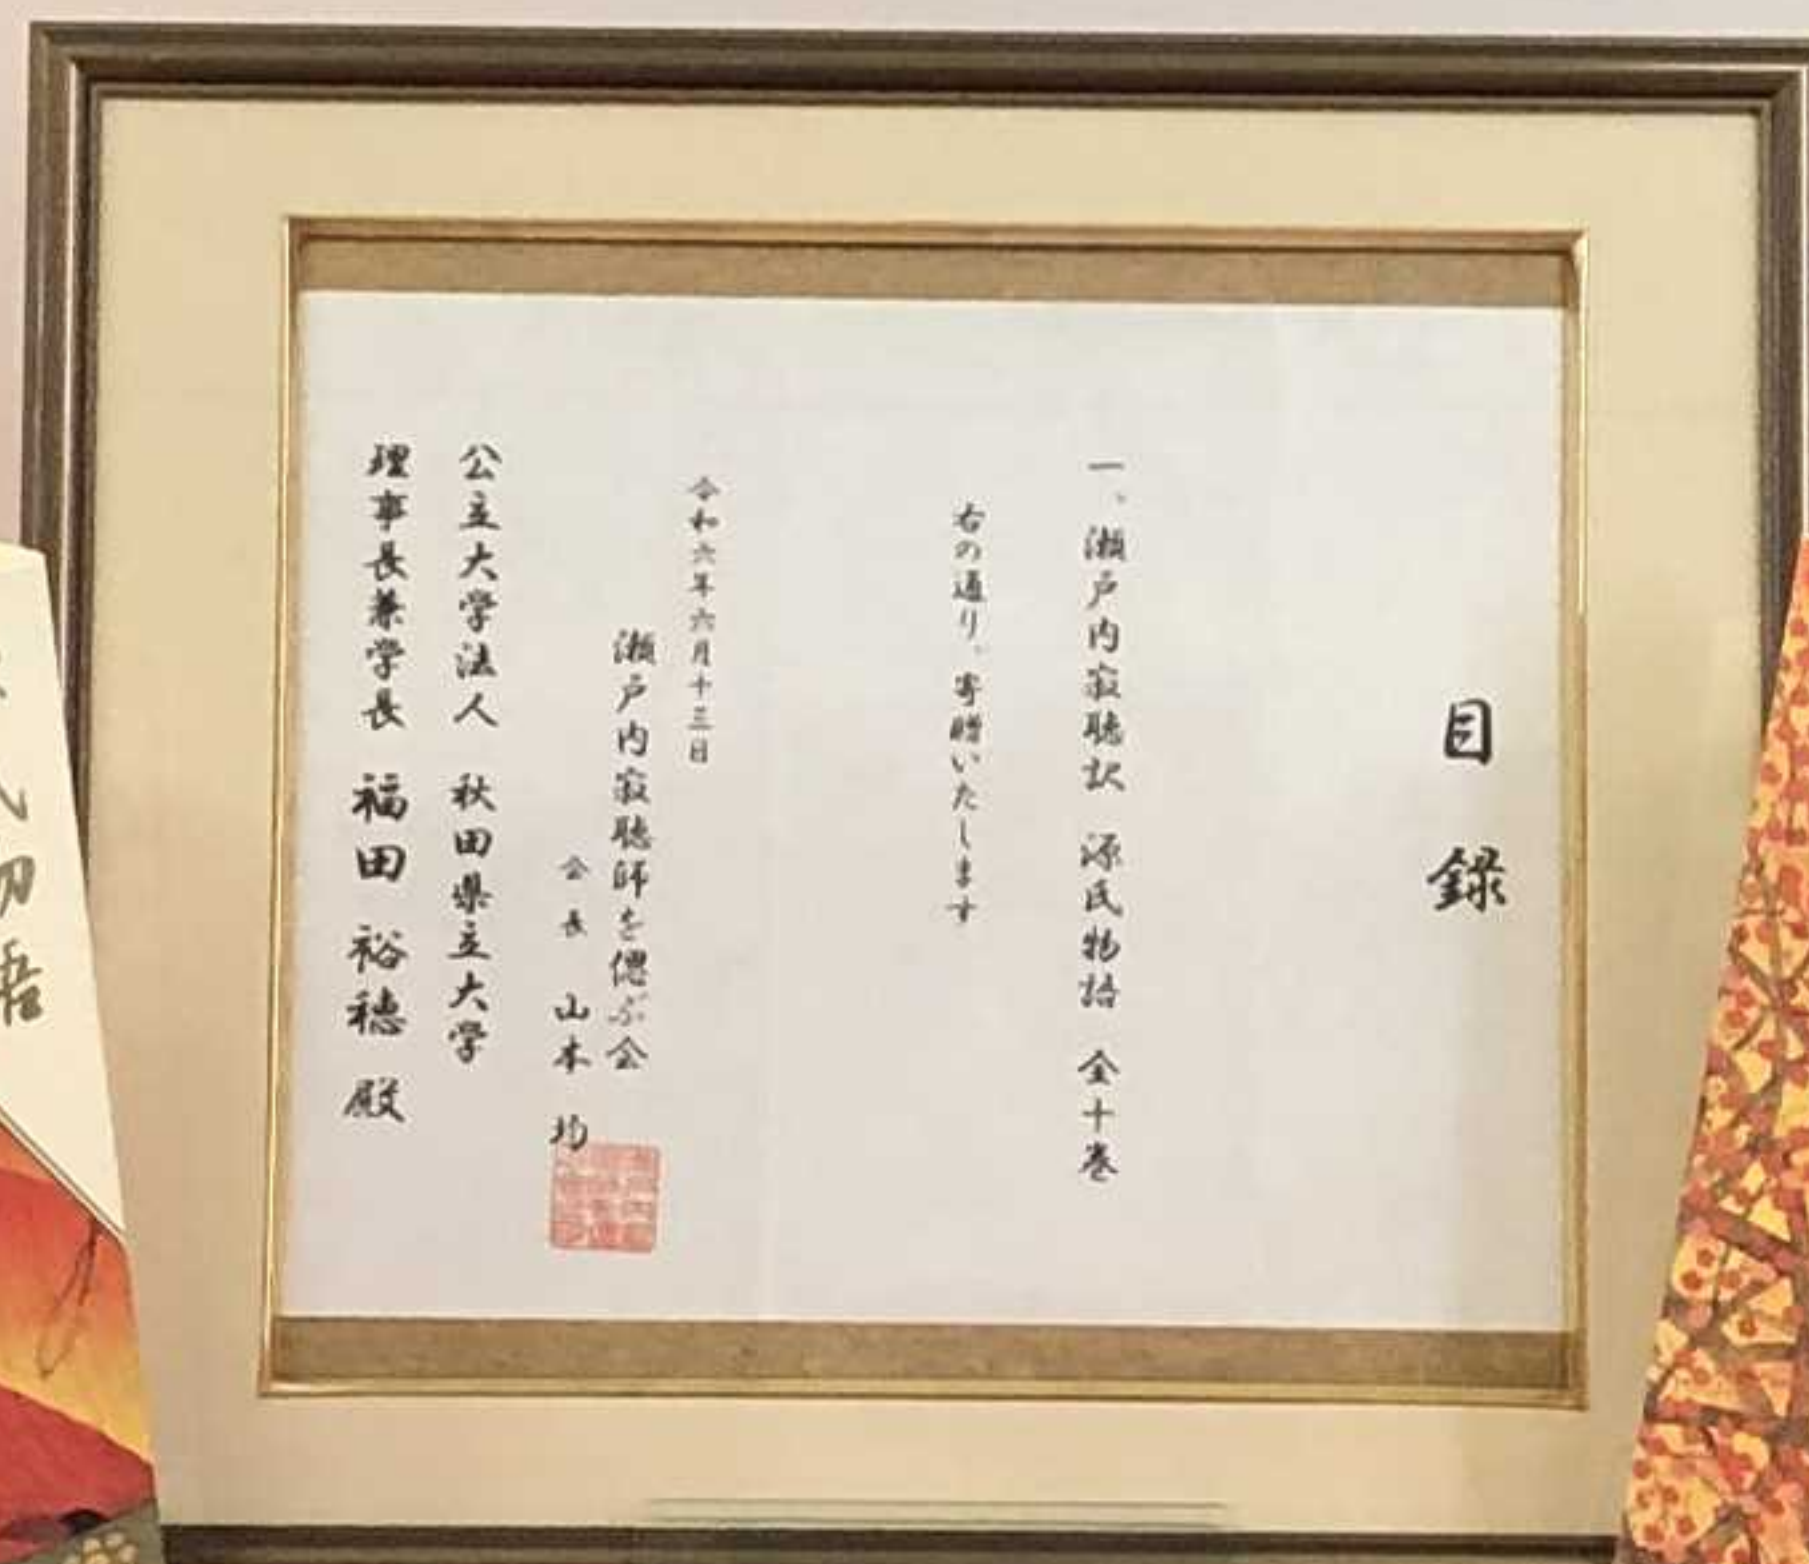 目録
一、瀬戸内寂聴訳 源氏物語 全十巻
右の通り、寄贈いたします
令和六年六月十三日
瀬戸内寂聴師を偲ぶ会
会長 山本 均
公立大学法人 秋田県立大学
理事長兼学長 福田 裕穂 殿